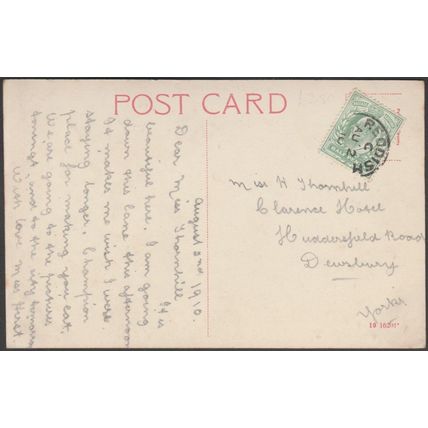 POST CARD
August 2nd 1910.
Dear Miss Thornhill It is
beautiful here. I am going
down this lane this afternoon
It makes me wish I were
staying longer. Champion
place for making you eat.
We are going to the pictures
tonight and to the city tomorrow
With love M
Miss H Thornhill
Clarence Hotel
Huddersfield Road
Dewsbury
Yorks
REDDISH
AU 2
10